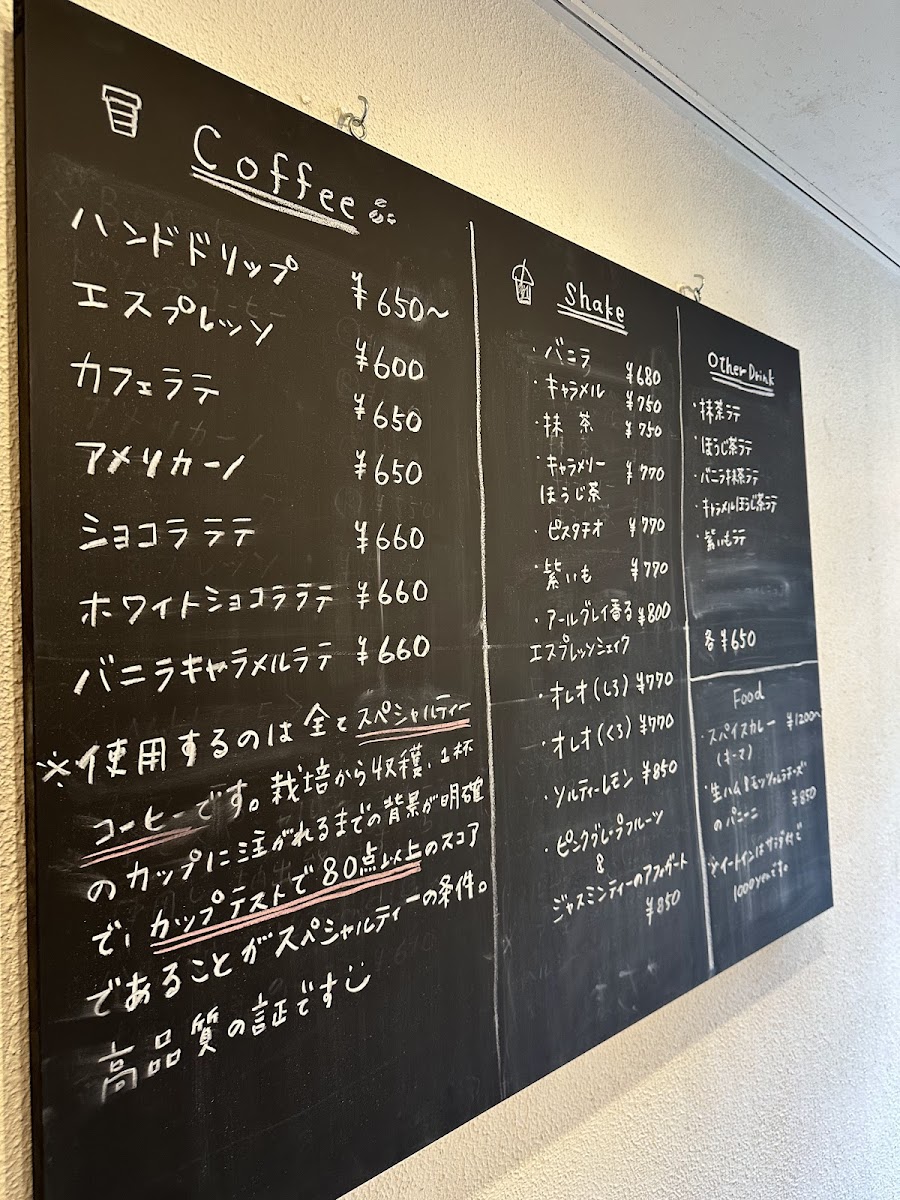 Coffee
ハンドドリップ ¥650〜
エスプレッソ ¥600
カフェラテ ¥650
アメリカーノ ¥650
ショコララテ ¥660
ホワイトショコララテ ¥660
バニラキャラメルラテ ¥660
※使用するのは全てスペシャルティー
コーヒーです。栽培から収穫、1杯
のカップに注がれるまでの背景が明確
で、カップテストで80点以上のスコア
であることがスペシャルティーの条件。
高品質の証です
Shake
・バニラ ¥680
・キャラメル ¥750
・抹茶 ¥750
・キャラメリー ¥770
ほうじ茶
・ピスタチオ ¥770
・紫いも ¥770
・アールグレイ香る ¥800
エスプレッソシェイク
・オレオ(しろ) ¥770
・オレオ(くろ) ¥770
・ソルティーレモン ¥850
・ピンクグレープフルーツ
&
ジャスミンティーのアフォガート
¥850
Other Drink
・抹茶ラテ
・ほうじ茶ラテ
・バニラ抹茶ラテ
・キャラメルほうじ茶ラテ
・紫いもラテ
各¥650
Food
・スパイスカレー ¥1200〜
(キーマ)
・生ハム&モッツァレラチーズ
のパニーニ ¥850
※イートインはサラダ付で
1000yenです。